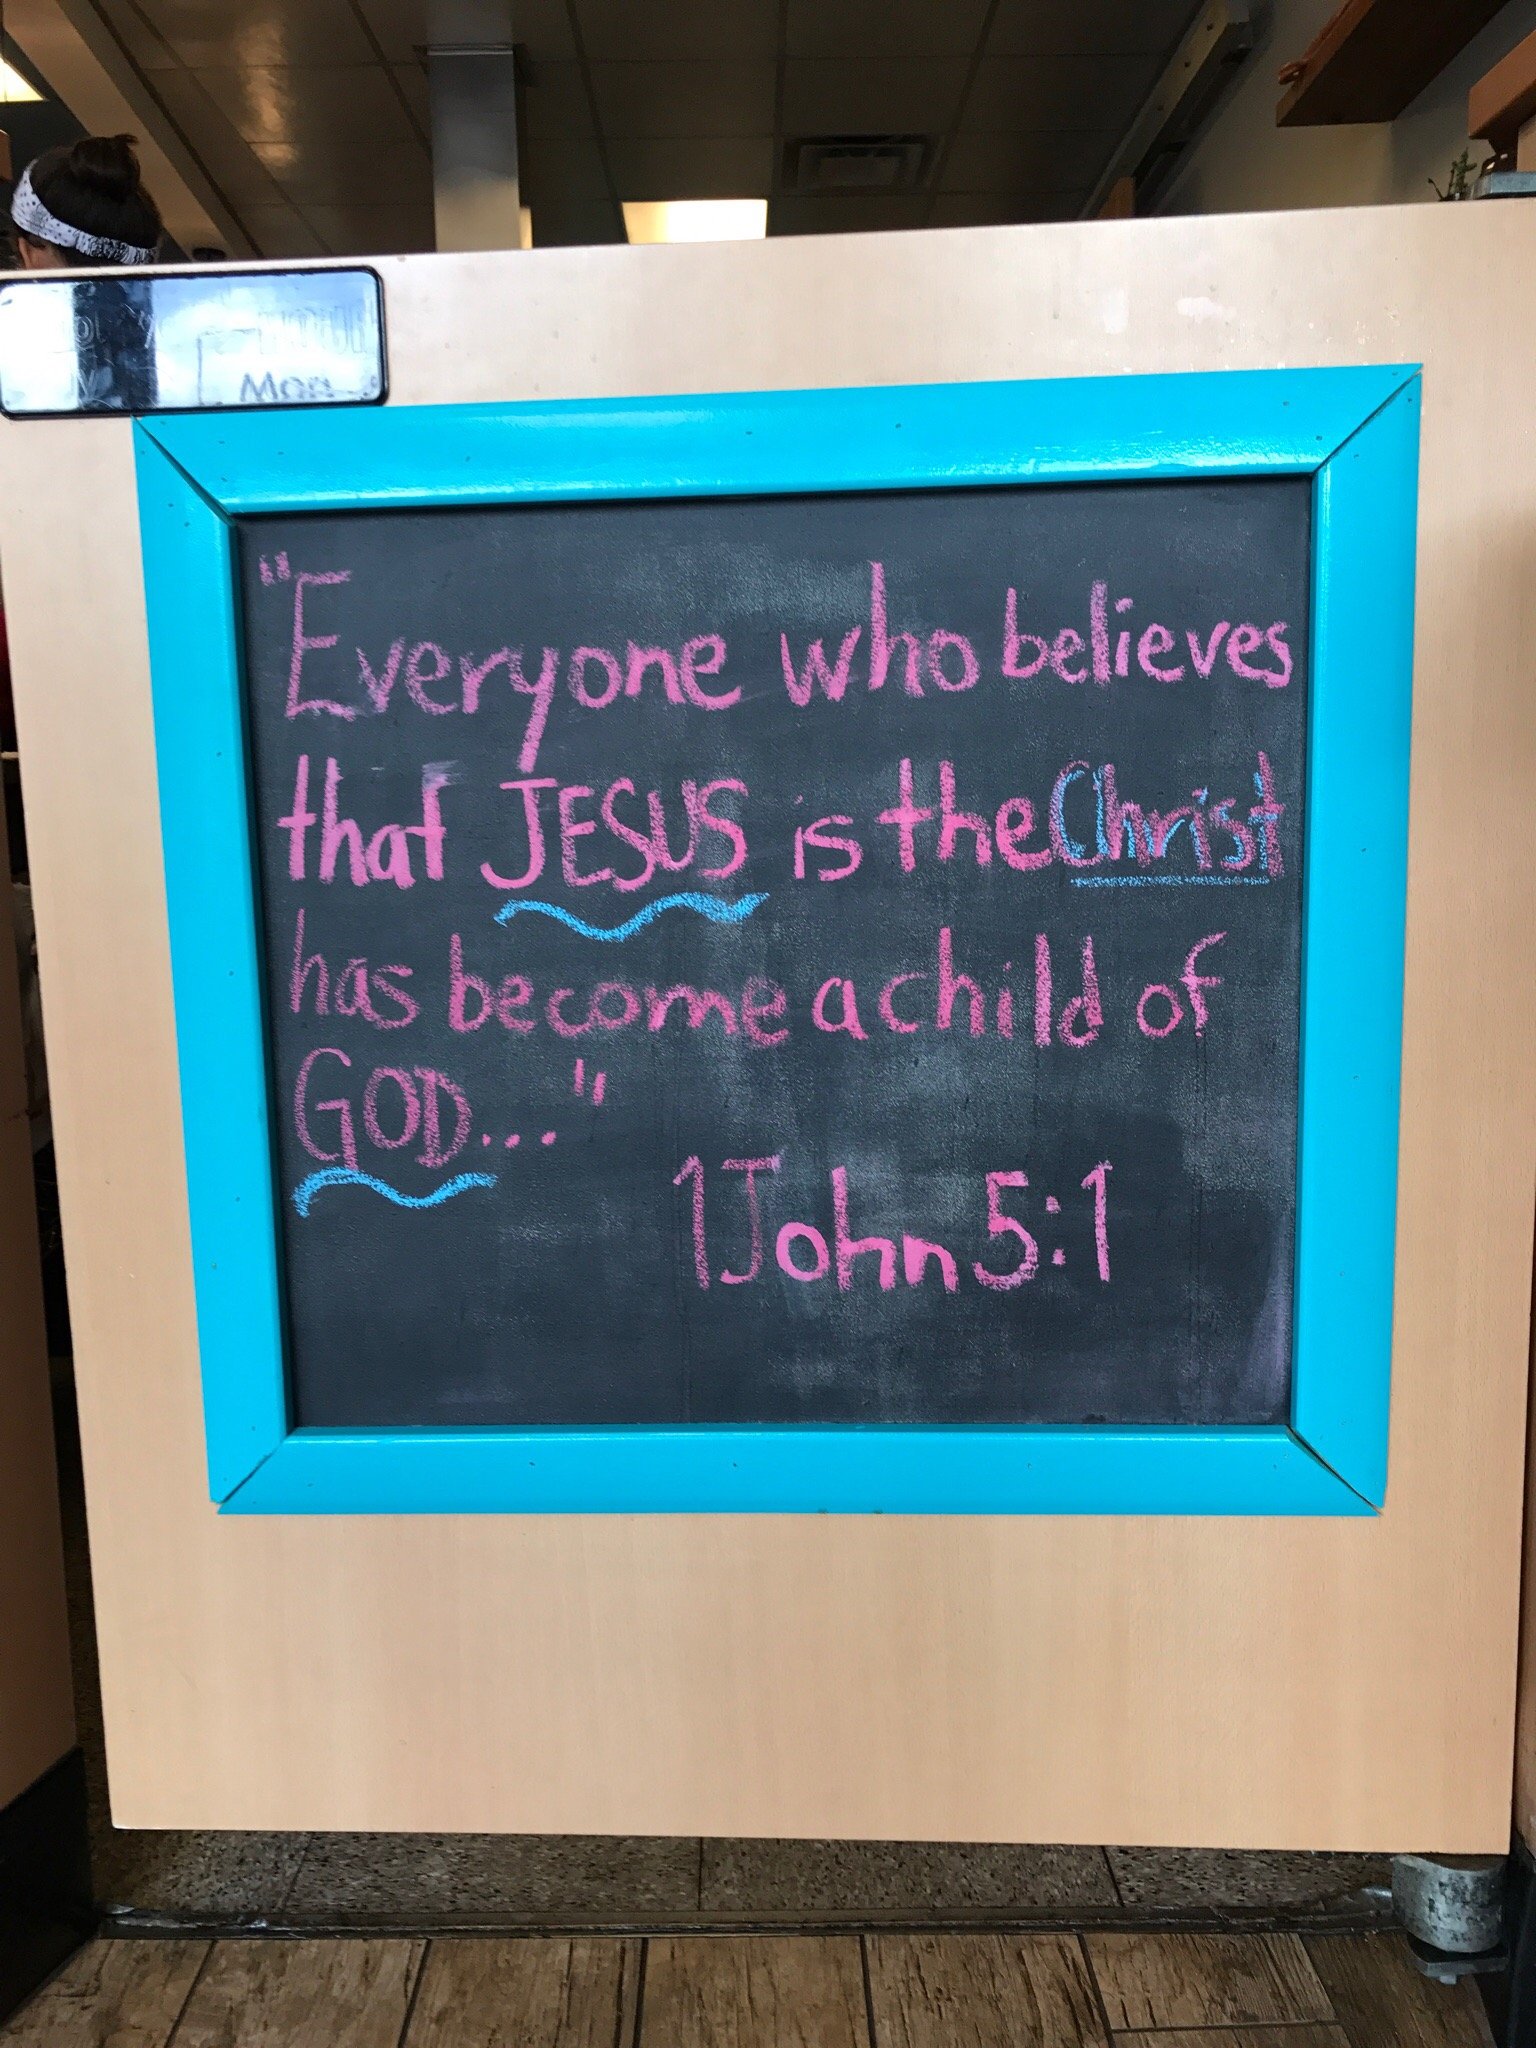 Mon
"Everyone who believes
that JESUS is the Christ
has become a child of
GOD..."
1 John 5:1